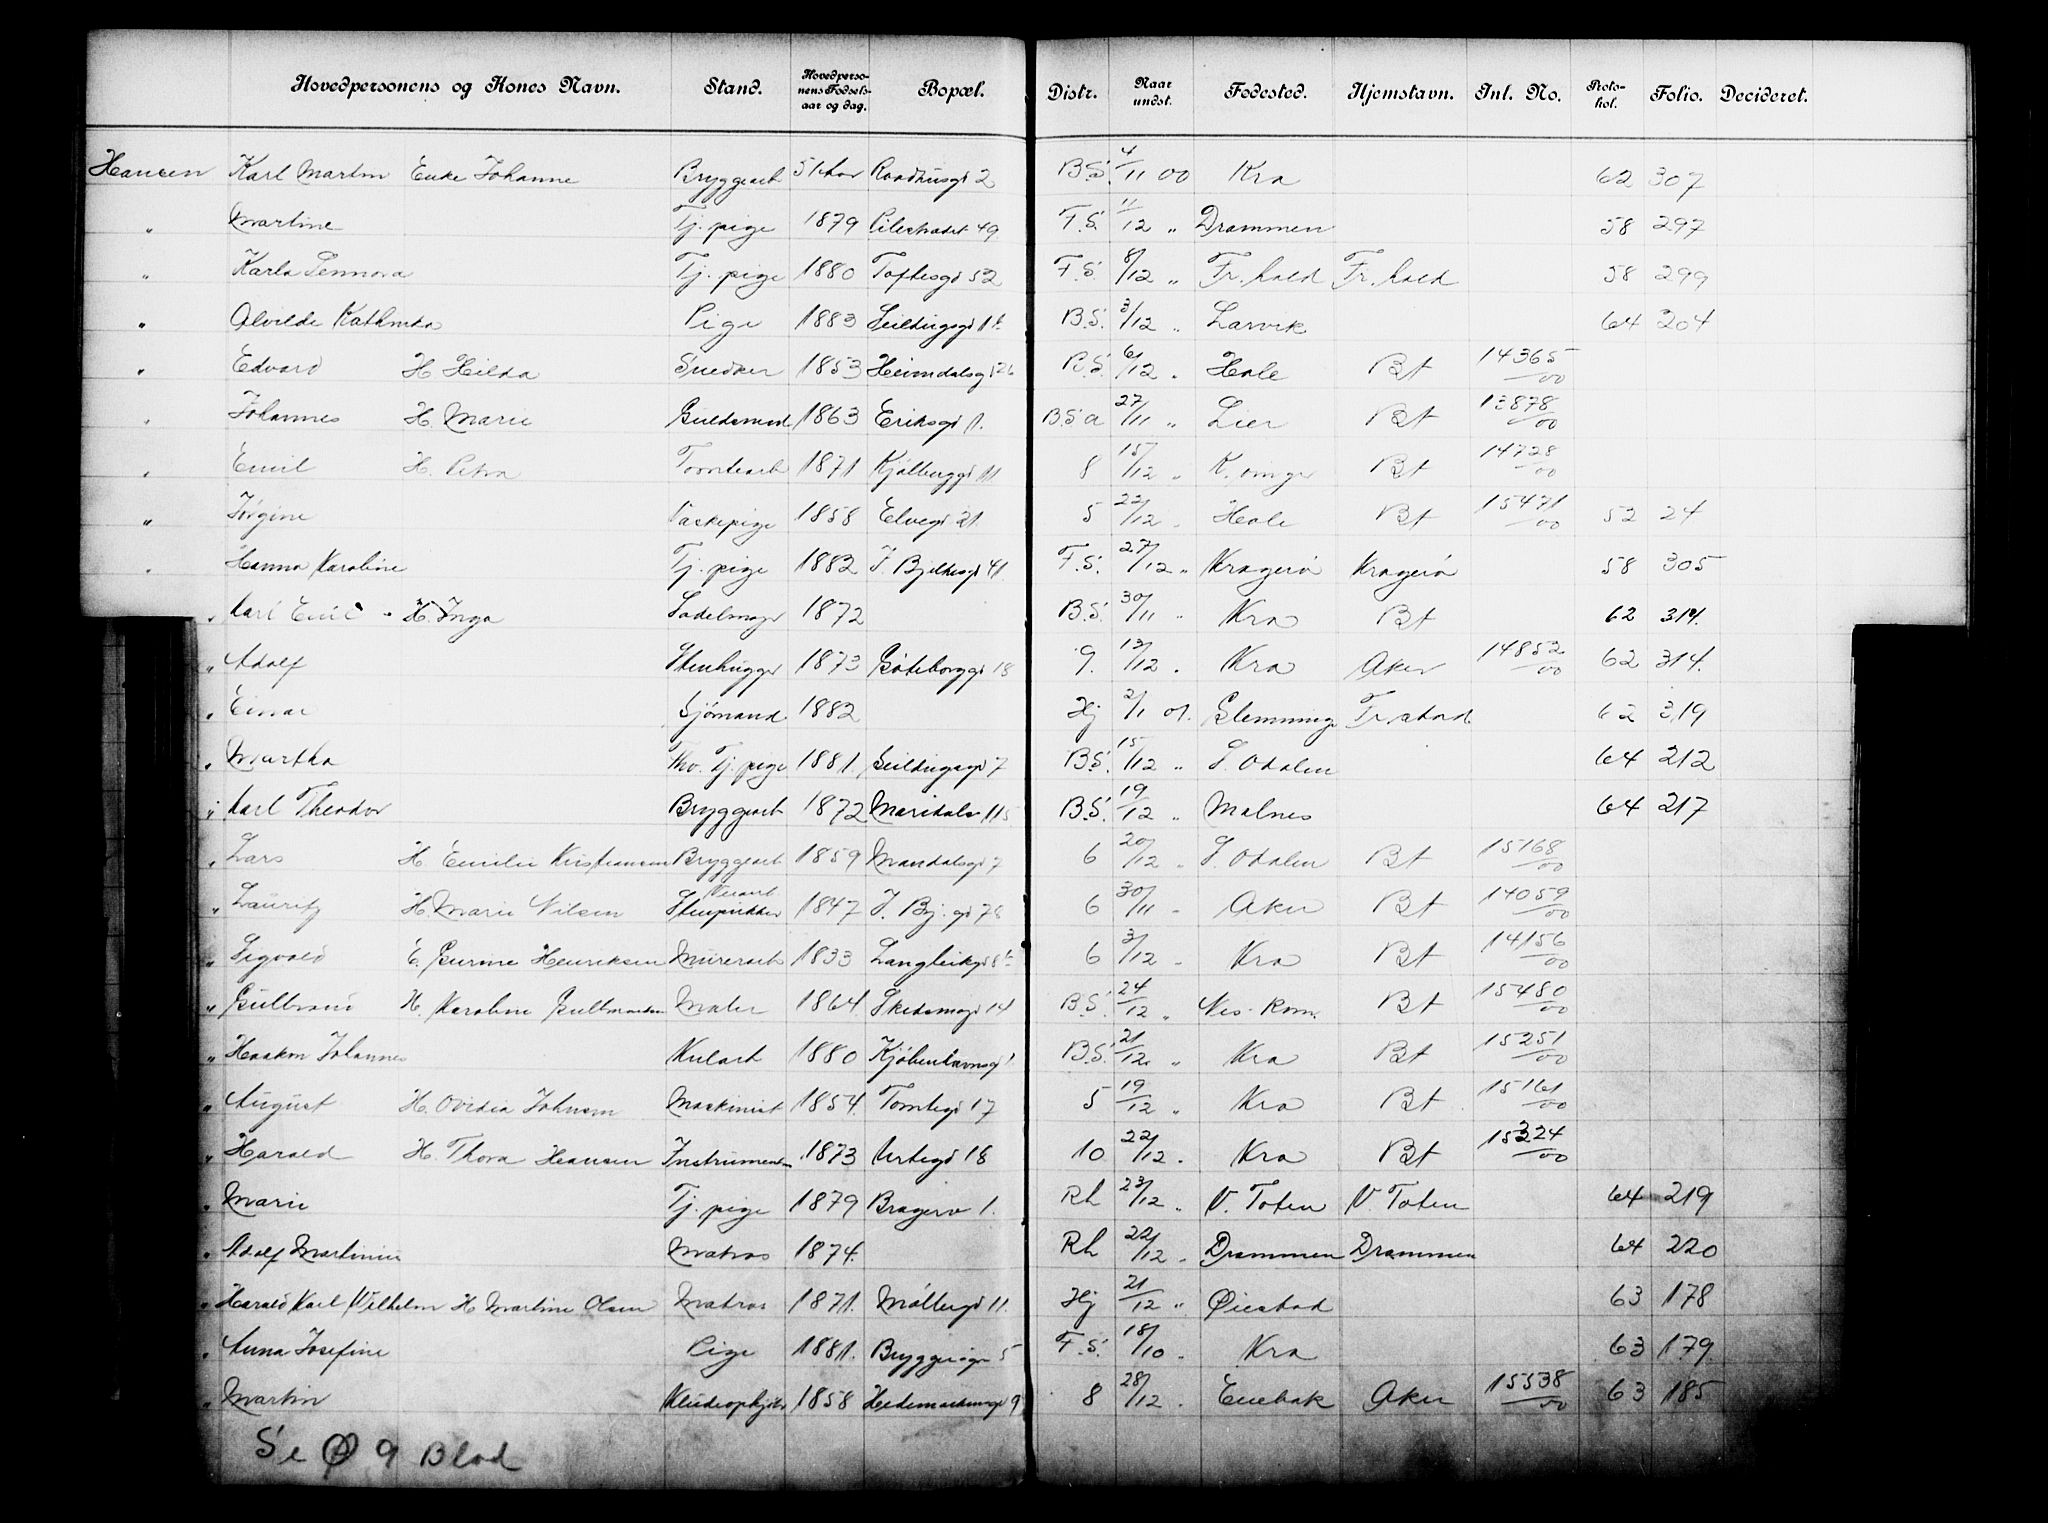 Hovedpersonens og Kones Navn. Stand. Hovedpersonens Fødselsaar og dag. Bopæl. Distr. Naar undst. Fødested. Hjemstavn. Inl. No. Protokol. Folio. Decideret.
Hansen Karl Martin Enke Johanne Bryggearb Raadhusgd 2 B.S. 4/11 00 Kra 62 307
" Martine Tj. pige 1879 Pilestrædet 49 F.S. 11/12 " Drammen 58 297
" Karla Pennora Tj. pige 1880 Toftesgd 52 F.S. 8/12 " Fr.hald Fr.hald 58 299
" Alvilde Kathinka Pige 1883 B.S. 3/12 " Larvik 64 204
" Edvard H Hilda Snedker 1853 Heimdalsgd 26 B.S. 6/12 " Hole Bt 14365/00
" Johannes H. Marie Guldsmed 1863 Eriksgd 1. B.S a 27/11 " Lier Bt 13878/00
" Emil H. Petra Tomtearb 1871 Kjølberggd 11 8 15/12 " K.vinger Bt 14728/00
" Jørgine Vaskepige 1858 Elvegd 21 5 22/12 " Hole Bt 15471/00 52 24
" Hanna Karoline Tj. pige 1882 J. Bjelkesgd 41 F.S. 27/12 " Kragerø Kragerø 58 305
" Karl Emil - H. Inga Sadelmager 1872 B.S. 30/11 " Kra Bt 62 314.
" Adolf Stenhugger 1873 Göteborggd 18 9. 13/12 " Kra Aker 14852/00 62 314.
" Einar Sjømand 1882 Hj 2/1 01. Glemminge Fr.stad 62 319
" Martha Tj. pige 1881. Seildugsgd 7 B.S. 15/12 " S. Odalen 64 212
" Karl Theodor Bryggearb 1872 Maridalsv 115 B.S. 19/12 " Malnes 64 217
" Lars H. Emilie Kristiansen Bryggearb 1859 Mandalsgd 7 6 20/12 " S. Odalen Bt 15168/00
" Lauritz H. Marie Nilsen Stenpikker Veiarb 1847 J. Bj. gd 78 6 30/11 " Aker Bt 14059/00
" Sigvald E. Gurine Henriksen Murerarb 1833 Langleikgd 6 3/12 " Kra Bt 14156/00
" Gulbrand H. Karoline Gulbrandsen Maler 1864 Skedsmogd 14 B.S. 24/12 " Nes. Rom. Bt 15480/00
" Haakon Johannes Kularb 1880 Kjøbenhavnsgd 1 B.S. 21/12 " Kra Bt 15251/00
" August H. Ovidia Johnsen Maskinist 1854. Tomtegd 17 5 19/12 " Kra Bt 15161/00
" Harald H. Thora Hansen Instrumentm 1873 Urtegd 18 10 22/12 " Kra Bt 15324/00
" Marie Tj. pige 1879 Bragerø 1. Rh 23/12 " V. Toten V. Toten 64 219
" Adolf Martinius Matros 1874. Rh 22/12 " Drammen Drammen 64 220
" Harald Karl Vilhelm H Martine Olsen Matros 1871. Møllergd 11. Hj 21/12 " Øiestad 63 178
" Anna Josefine Pige 1881. 5 F.S. 18/10 " Kra 63 179.
" Martin Kludeopkjøber 1858 Hedemarkensgd 9 8 28/12 " Enebak Aker 15538/00 63 185
Se Ø 9 Blad